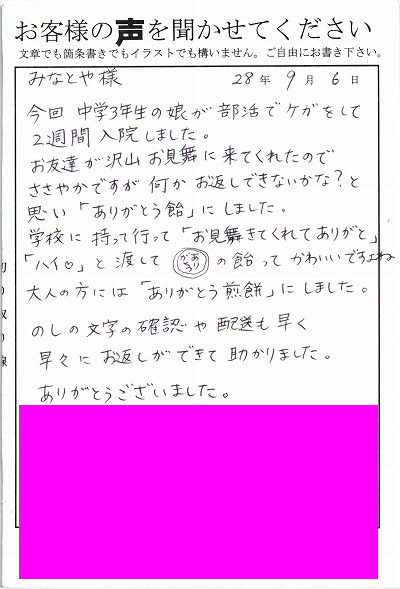 お客様の声を聞かせてください
文章でも箇条書きでもイラストでも構いません。ご自由にお書き下さい。
みなとや様 28年 9月 6日
今回 中学3年生の娘が 部活でケガをして
2週間入院しました。
お友達が沢山 お見舞に来てくれたので
ささやかですが 何か お返しできないかな?と
思い「ありがとう飴」にしました。
学校に 持って行って「お見舞きてくれてありがと」
「ハイ♡」と 渡して ありがとう の飴って かわいいですよね
大人の方には「ありがとう煎餅」にしました。
のしの文字の確認や 配送も 早く
早々に お返しができて 助かりました。
ありがとうございました。
切り取り線